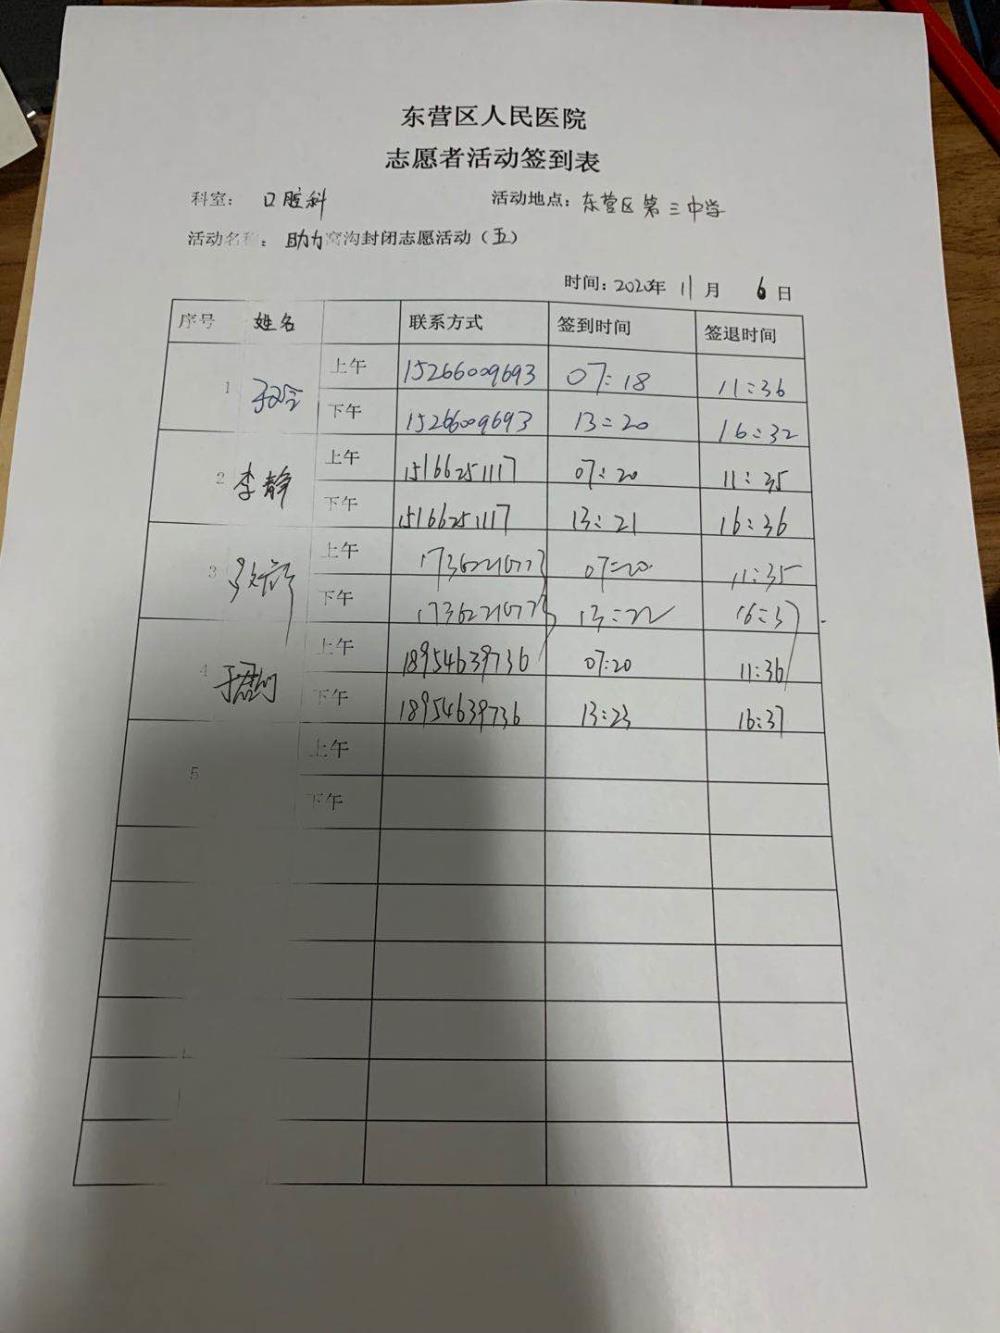 东营区人民医院
志愿者活动签到表
科室： 口腔科 活动地点：东营区第三中学
活动名称： 助力窝沟封闭志愿活动（五）
时间：2020年 11月 6日
序号 姓名 联系方式 签到时间 签退时间
1 上午 15266009693 07:18 11:36
下午 15266009693 13:20 16:32
2 李静 上午 15166251117 07:20 11:35
下午 15166251117 13:21 16:36
3 上午 07:20 11:35
下午 13:22 16:37
4 上午 18954639736 07:20 11:36
下午 18954639736 13:23 16:37
5 上午
下午